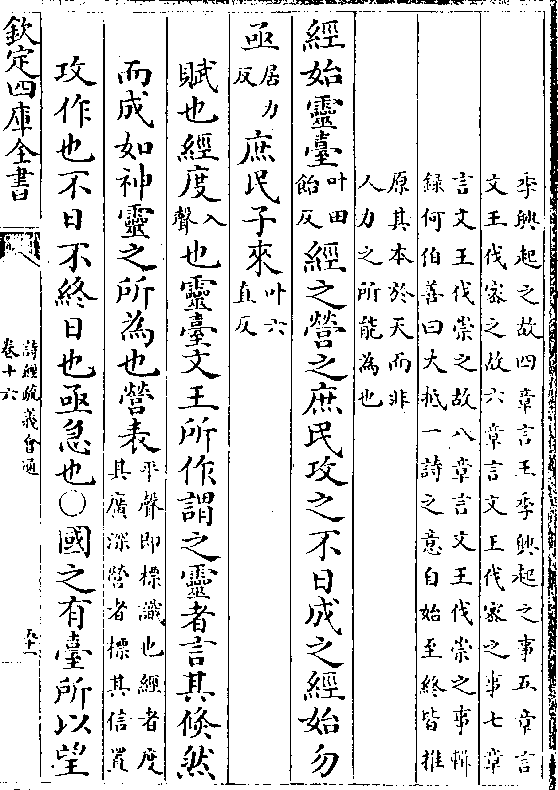 季興起之故四章言王季興起之事五章言
文王伐宻之故六章言文王伐宻之事七章
言文王伐崇之故八章言文王伐崇之事輯
録何伯善曰大抵一詩之意自始至終皆推
原其本於天而非
人力之所能為也
經始靈臺叶田飴反經之營之庶民攻之不日成之經始勿
亟居力反庶民子來叶六直反
賦也經度入聲也靈臺文王所作謂之靈者言其倐然
而成如神靈之所為也營表平聲即標識也經者度其廣深營者標其位置
攻作也不日不終日也亟急也○國之有臺所以望
欽定四庫全書
詩經疏義會通
卷十六